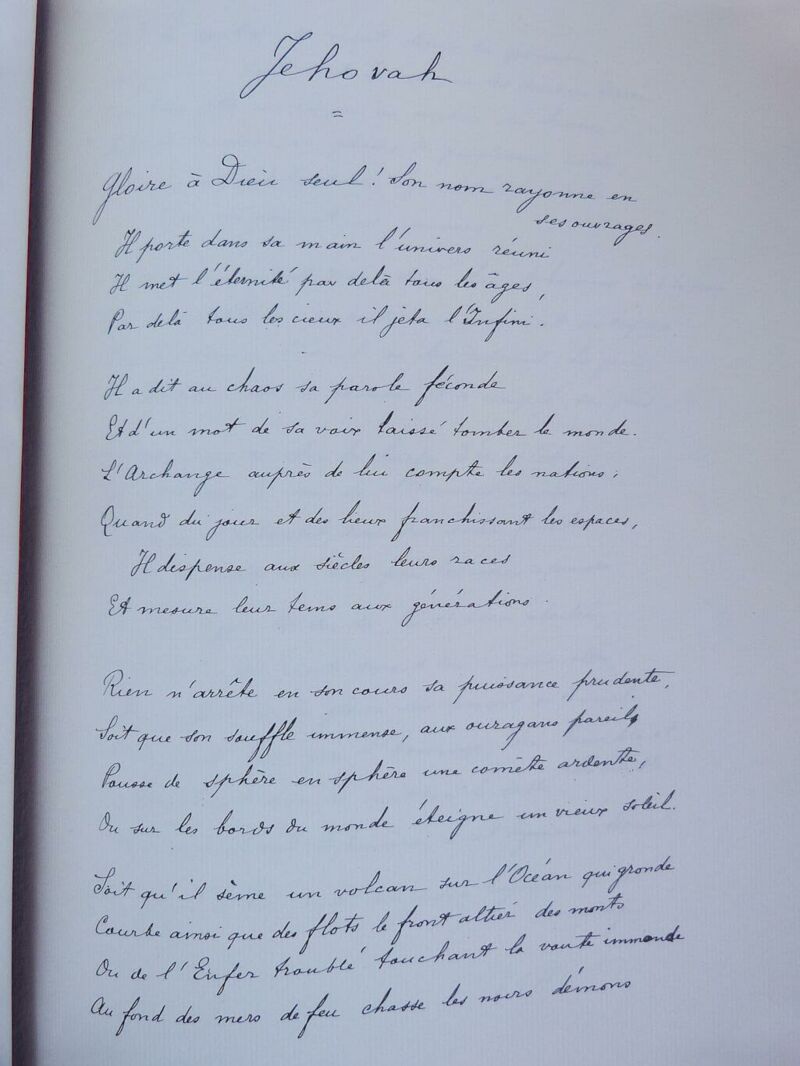 Jehovah
=
Gloire à Dieu seul! Son nom rayonne en
ses ouvrages.
Il porte dans sa main l'univers réuni
Il met l'éternité par delà tous les âges,
Par delà tous les cieux il jeta l'Infini.
Il a dit au chaos sa parole féconde
Et d'un mot de sa voix laissé tomber le monde.
L'Archange auprès de lui compte les nations,
Quand du jour et des lieux franchissant les espaces,
Il dispense aux siècles leurs races
Et mesure leur tems aux générations.
Rien n'arrête en son cours sa puissance prudente,
Soit que son souffle immense, aux ouragans pareil,
Pousse de sphère en sphère une comète ardente,
Ou sur les bords du monde éteigne un vieux soleil.
Soit qu'il sème un volcan sur l'Océan qui gronde
Courbe ainsi que des flots le front altier des monts
Ou de l'Enfer troublé touchant la voute immonde
Au fond des mers de feu chasse les noirs démons